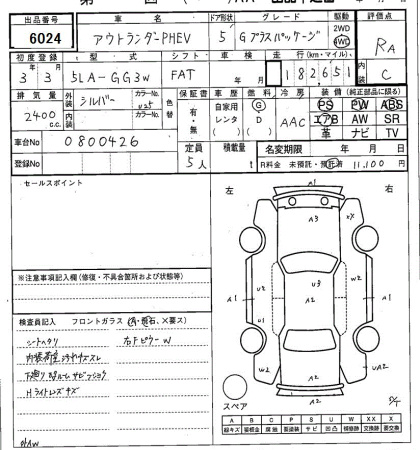 出品番号 車名 ドア形状 グレード 駆動 評価点
6024 アウトランダーPHEV 5 Gプラスパッケージ 2WD 4WD RA
初度登録 型式 シフト 車検 走行(km・マイル) 内装
3年3月 5LA-GG3W FAT 年 月 182651 C
排気量 外装 カラーNo. 色替 保証書 車歴 燃料 冷房 装備(純正部品に限る)
2400c.c. シルバー U25 有・無 自家用 レンタ G D AAC PS PW ABS
エアB AW SR
革 ナビ TV
内装 カラーNo.
車台No 0800426 定員 積載量 名変期限 年 月 日
登録No 5人 R料金 未預託・預託済 11,100円
セールスポイント
左 右
A1
A3 XX
U2 U3 W2
A1 U1 A1
W2 A2 UA2
A2
スペア
※注意事項記入欄(修復・不具合箇所および状態等)
検査員記入 フロントガラス(・飛石、×要ス)
シートヘタリ 右FピラーW
Hライトレンズキズ
A B C P S U W X XX ×
線キズ 腐蝕 要塗装 サビ 凹凸 補修跡 要交換